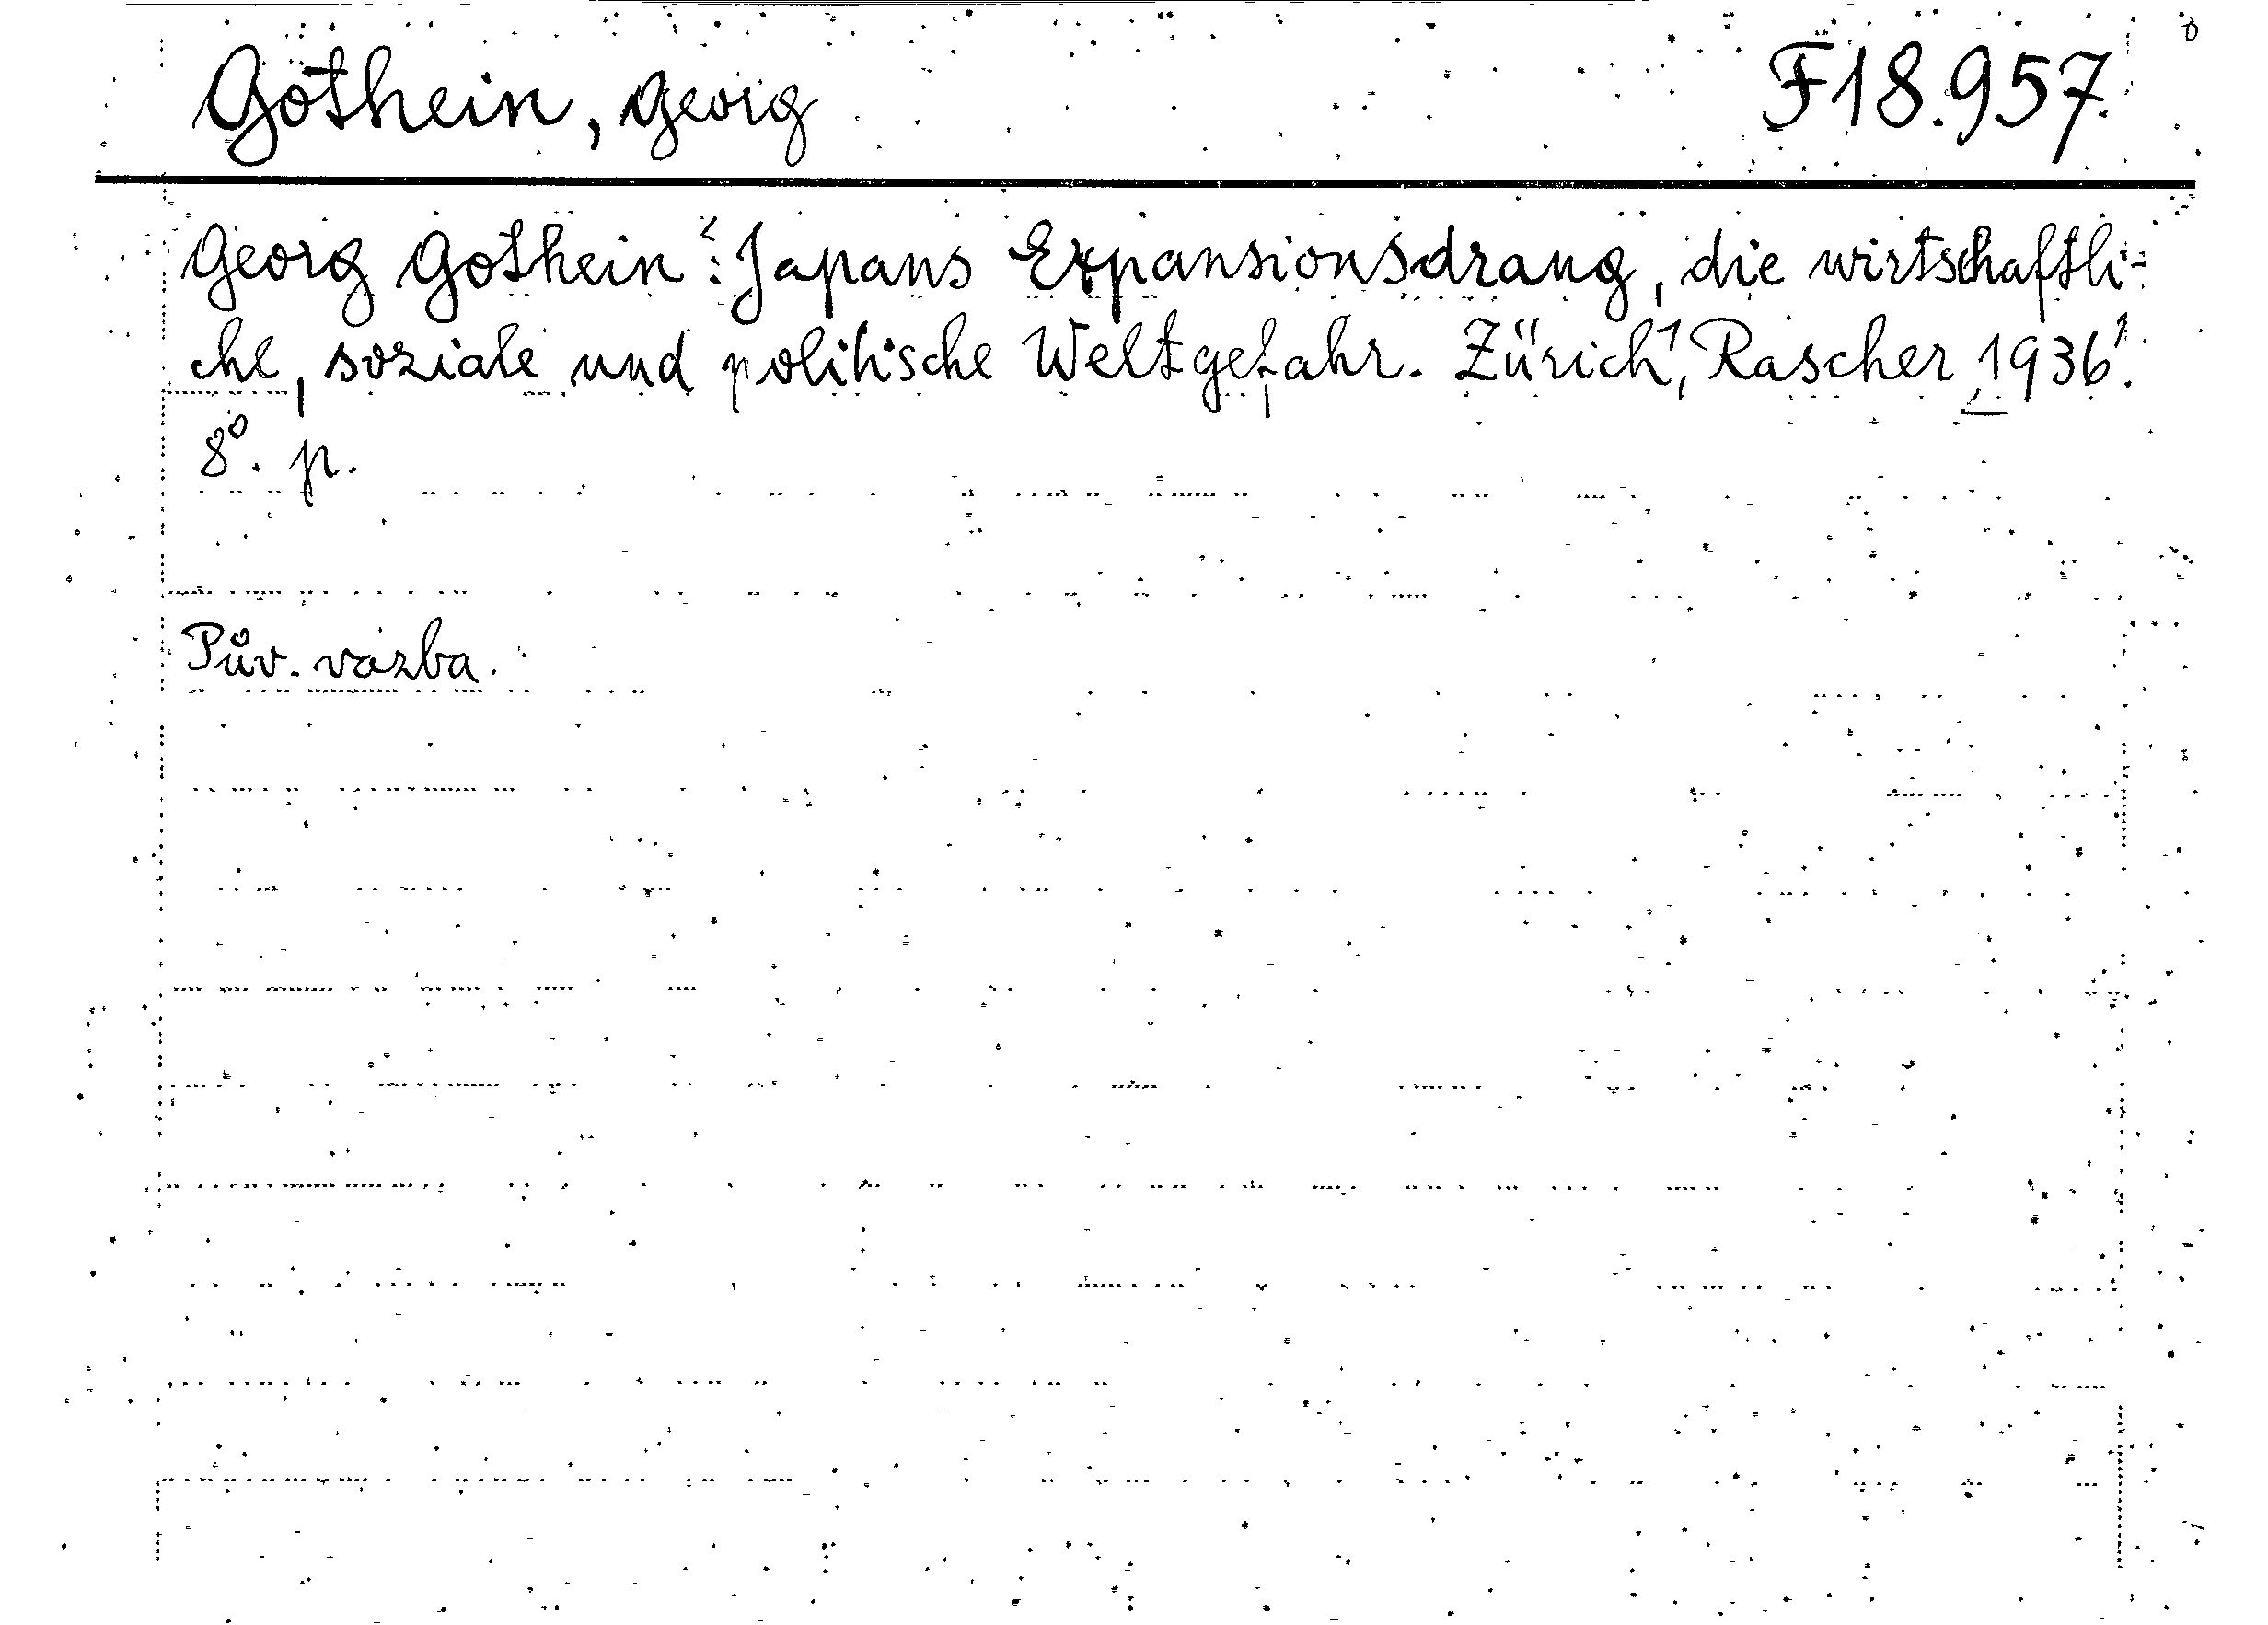 Gothein, Georg F18.957.
Georg Gothein: Japans Expansionsdrang, die wirtschaftli-
che, soziale und politische Weltgefahr. Zürich, Rascher, 1936.
8°. p.
Pův. vazba.